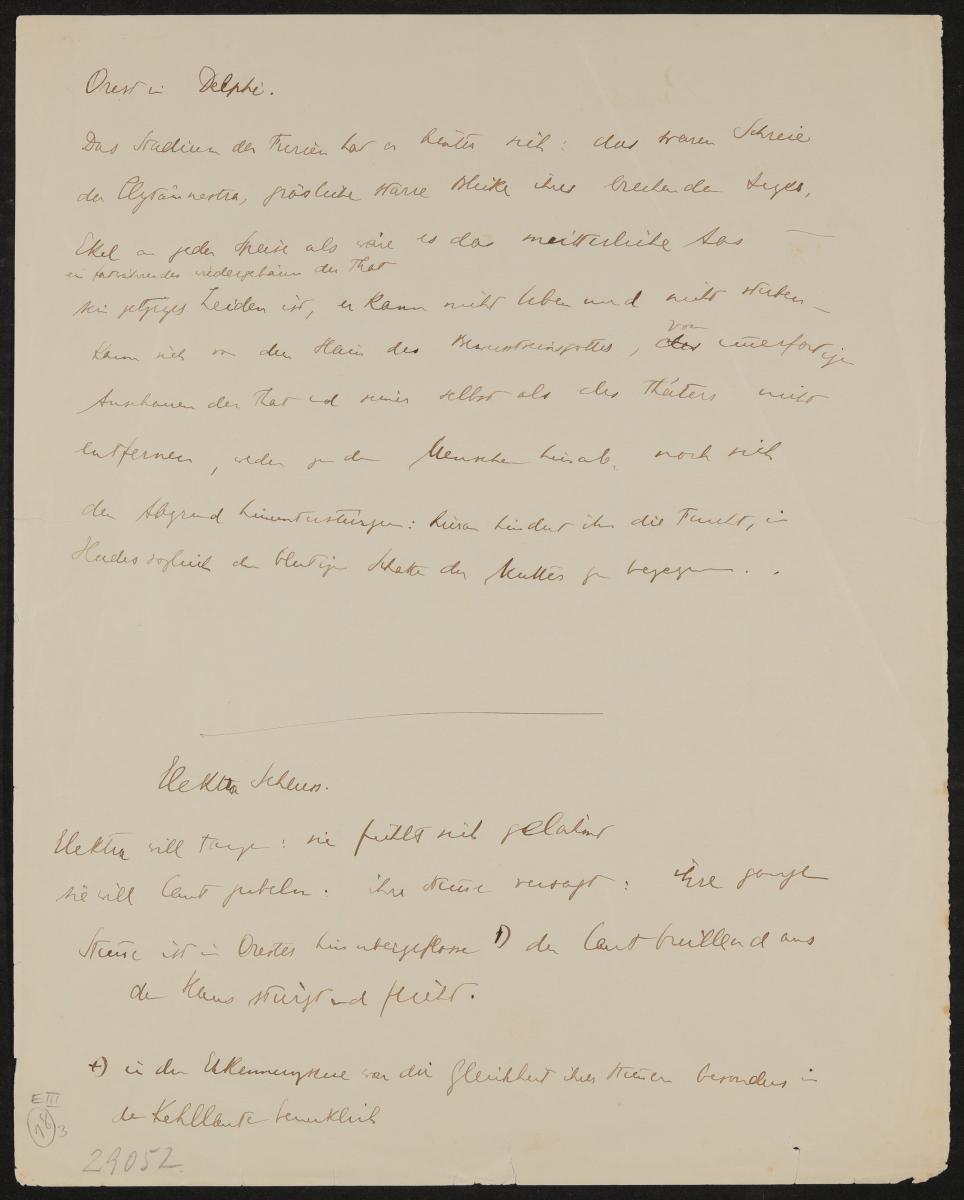 Orest in Delphi.
Das Stadium der Furien hat er hinter sich: das waren Schreie
der Clytämnestra, grässliche starre Blicke ihres brechenden Auges,
Ekel an jeder Speise als wäre es das mütterliche Aas —
ein fortwährendes wiedergebären der That
sein jetziges Leiden ist, er kann nicht leben und nicht sterben
kann sich von dem Hain des Bewusstseinsgottes, vom
Anschauen der That und seiner selbst als des Thäters nicht
entfernen, weder zu den Menschen hinab, noch sich
den Abgrund hinunterstürzen: hieran hindert ihn die Furcht, im
Hades sogleich dem blutigen Schatten der Mutter zu begegnen. .
Elektra Schluss.
Elektra will tanzen: sie fühlt sich gelähmt
sie will laut jubeln: ihre Stimme versagt: ihre ganze
Stimme ist in Orestes hinübergeflossen †) der laut brüllend aus
dem Haus stürzt und flieht.
†) in der Erkennungscene war die Gleichheit ihrer Stimmen besonders in
der Kehllaute bemerklich
E III
18
3
29052